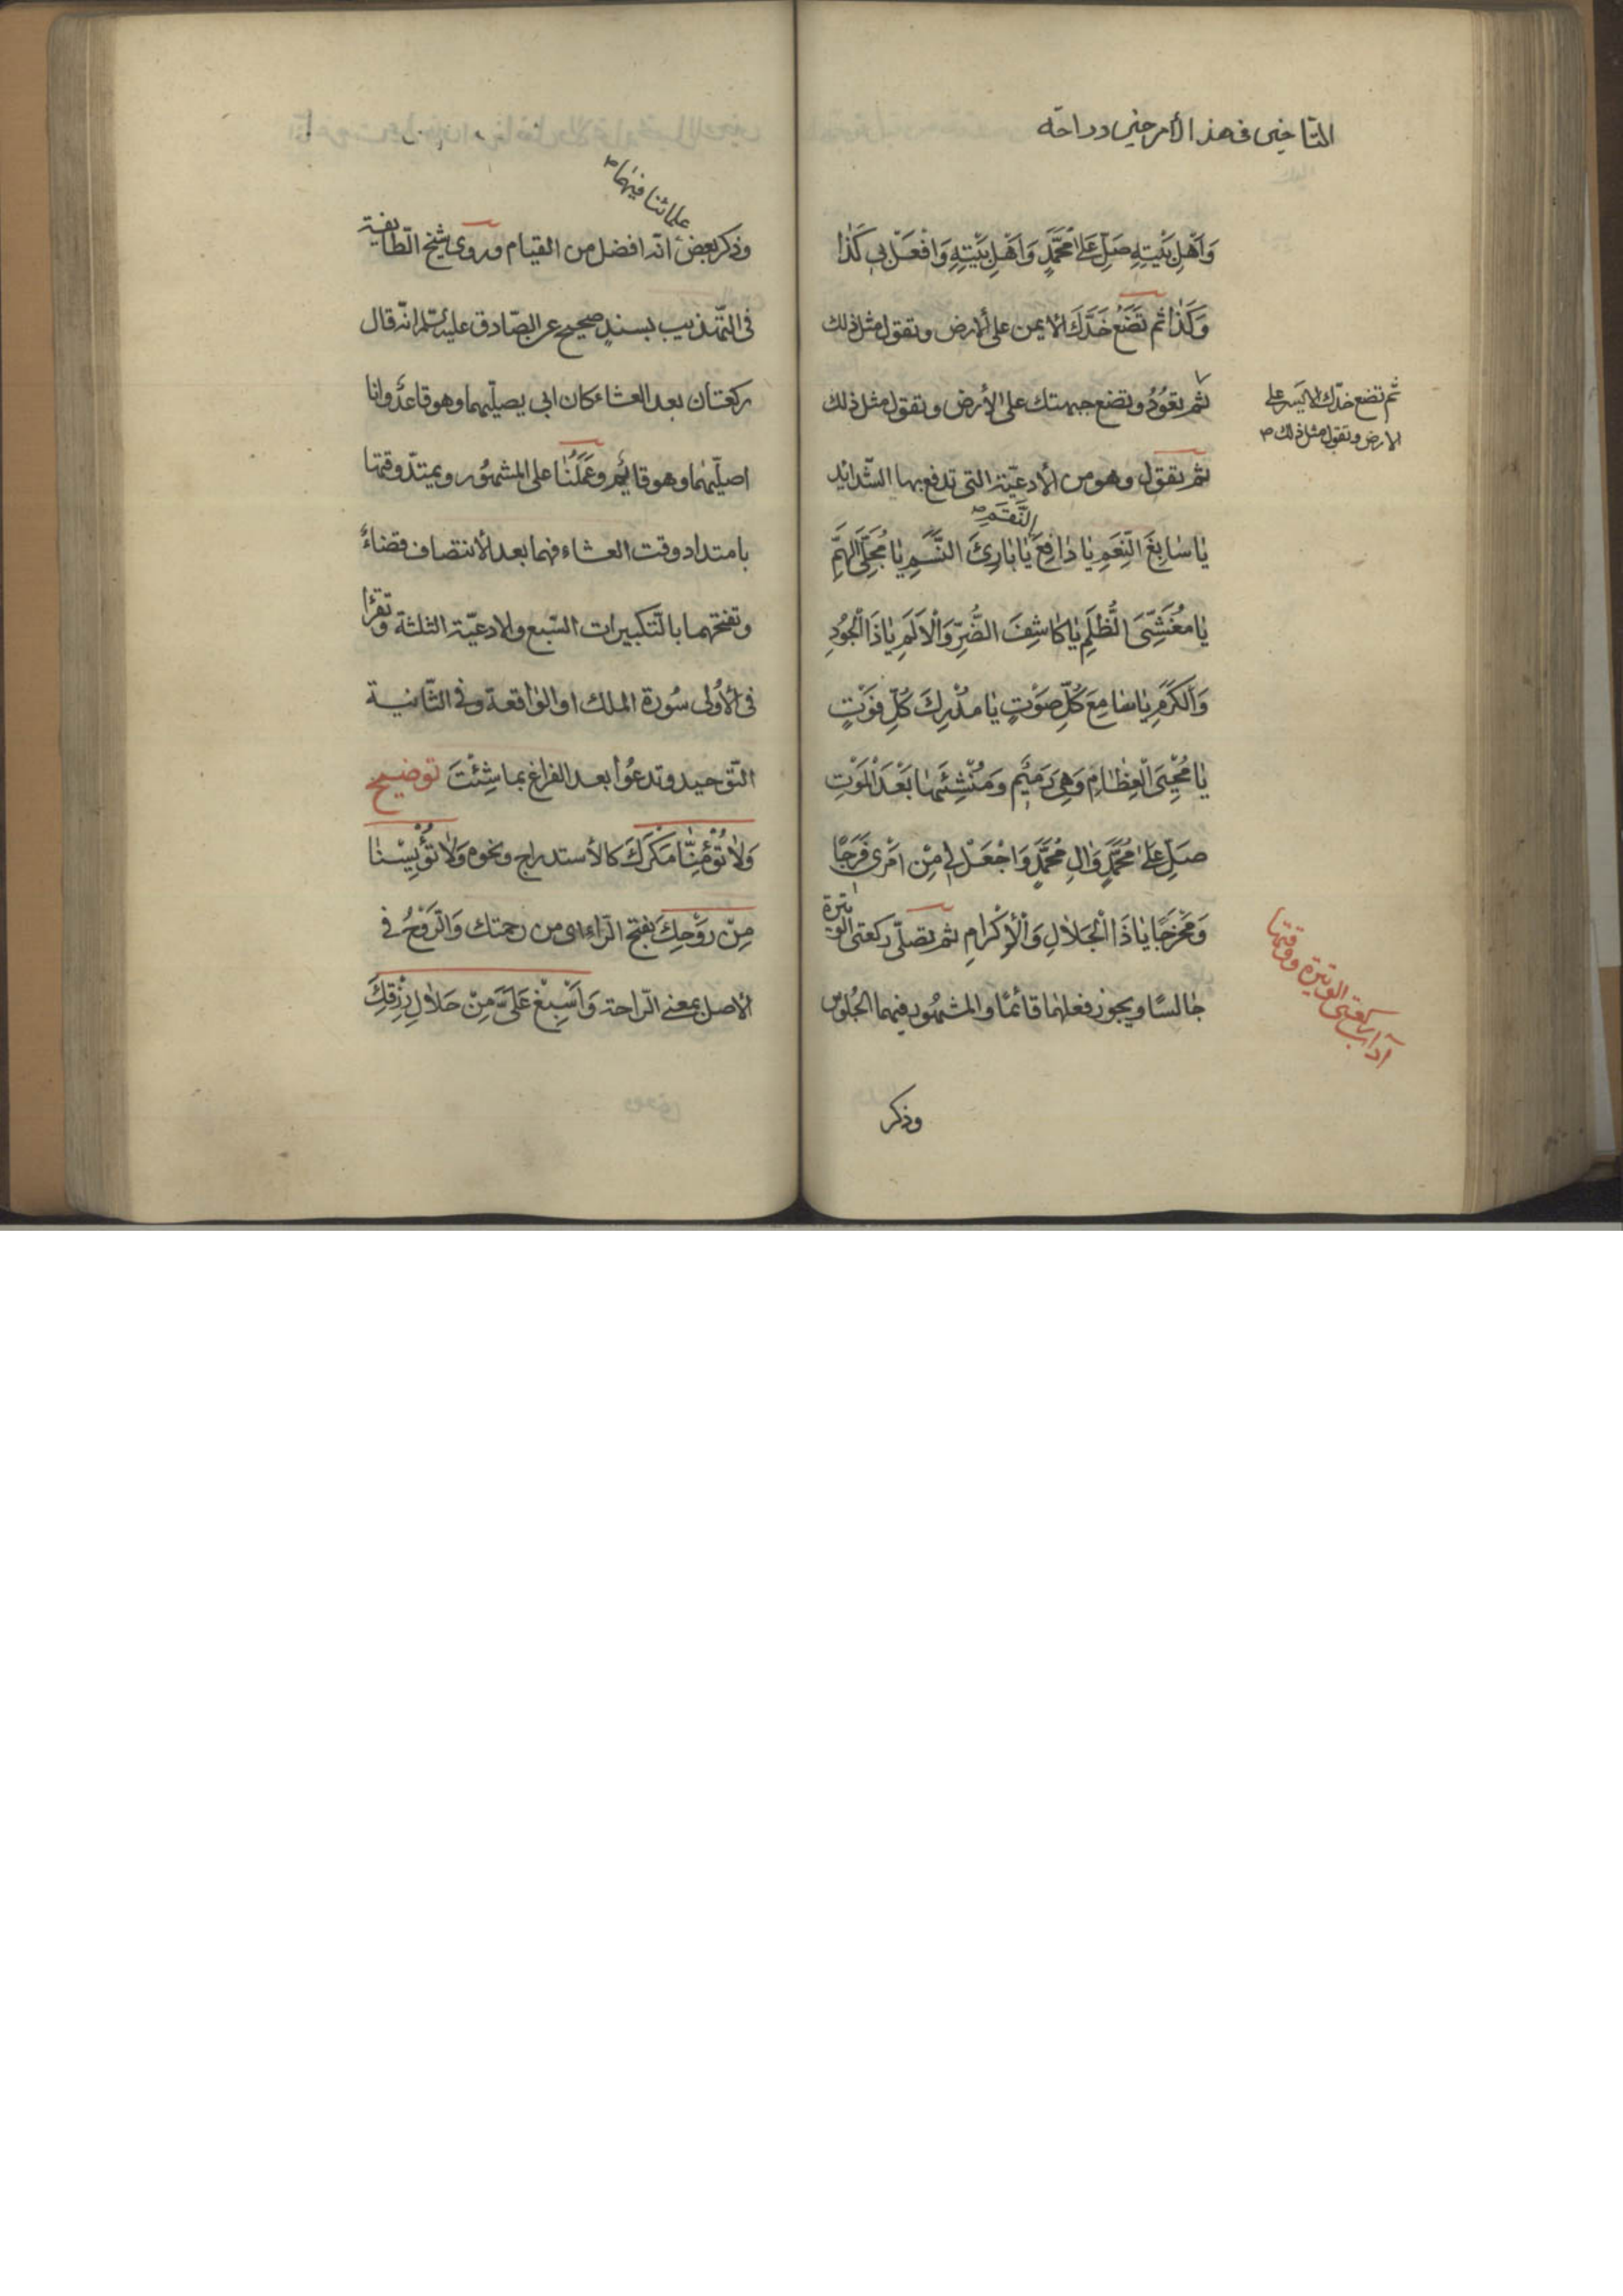 التاخير فى هذا الأمر خير وراحة
وَاَهْلِ بَيْتِهِ صَلِّ عَلىٰ مُحَمَّدٍ وَاَهْلِ بَيْتِهِ وَافْعَلْ بى كَذٰا
وَكَذٰا ثم تَضَعُ خَدَّكَ الايمن على الارض وتقول مثل ذلك
ثم تعُودُ وتضع جبهتك على الأرض وتقول مثل ذلك
ثم تضع خدّك الايسر على
الارض وتقول مثل ذلك صح
ثم تقول وهو من الأدعيّة التى تدفع بها الشّدائد
يٰا سٰابِغَ النِّعَمِ يٰا دٰافِعَ النِّقَمِ يٰا بٰارِئَ النَّسَمِ يٰا مُجَلِّىَ الهِمَمِ
يٰا مُغَشِّىَ الظُّلَمِ يٰا كٰاشِفَ الضُّرِّ وَالْاَلَمِ يٰا ذَا الْجُودِ
وَالْكَرَمِ يٰا سٰامِعَ كُلِّ صَوْتٍ يٰا مُدْرِكَ كُلِّ فَوْتٍ
يٰا مُحْيِىَ الْعِظٰامِ وَهِىَ رَمِيْم وَمُنْشِئَهٰا بَعْدَ الْمَوْتِ
صَلِّ عَلىٰ مُحَمَّدٍ وَالِ مُحَمَّدٍ وَاجْعَلْ لى مِنْ اَمْرى فَرَجًا
وَمَخْرَجًا يٰا ذَا الْجَلٰالِ وَالْاِكْرٰامِ ثم تصلّى ركعتى الوتيرة
آداب ركعتى الوتيرة ووقتها
جٰالسًا ويجوز فعلهٰما قائمًا والمشهُور فيهما الجلُوس
وذكر
وذكر بعض علمائنا فيهما انّه افضل من القيام وروى شيخ الطّايفة
فى التّهذيب بسندٍ صحيح عن الصّادق عليه السّلم انّه قال
ركعتان بعد العشاء كان ابى يصلّيهما وهو قاعدٌ وانا
اصلّيهما وهو قايم وعَمَلُنٰا على المشهُور ويمتدّ وقتها
بامتداد وقت العشاء فهما بعد الأنتصاف قضاءً
وتفتتحهما بالتّكبيرات السّبع والادعيّة الثلثة وتقرٔا
فى الأُولى سُورة الملك او الوٰاقعة وفى الثّانية
التّوحيد وتدعُوا بعد الفراغ بما شِئْتَ توضيح
وَلٰا تُؤْمِنّٰا مَكْرَكَ كالأستدراج ونحوه وَلٰا تُؤْيِسْنٰا
مِنْ رَوْحِكَ بفتح الرّاء اى من رحمتك وَالرَّوْحُ فى
الاصل بمعنى الرّاحة وَاَسْبِغْ عَلَىَّ مِنْ حَلٰالِ رِزْقِكَ